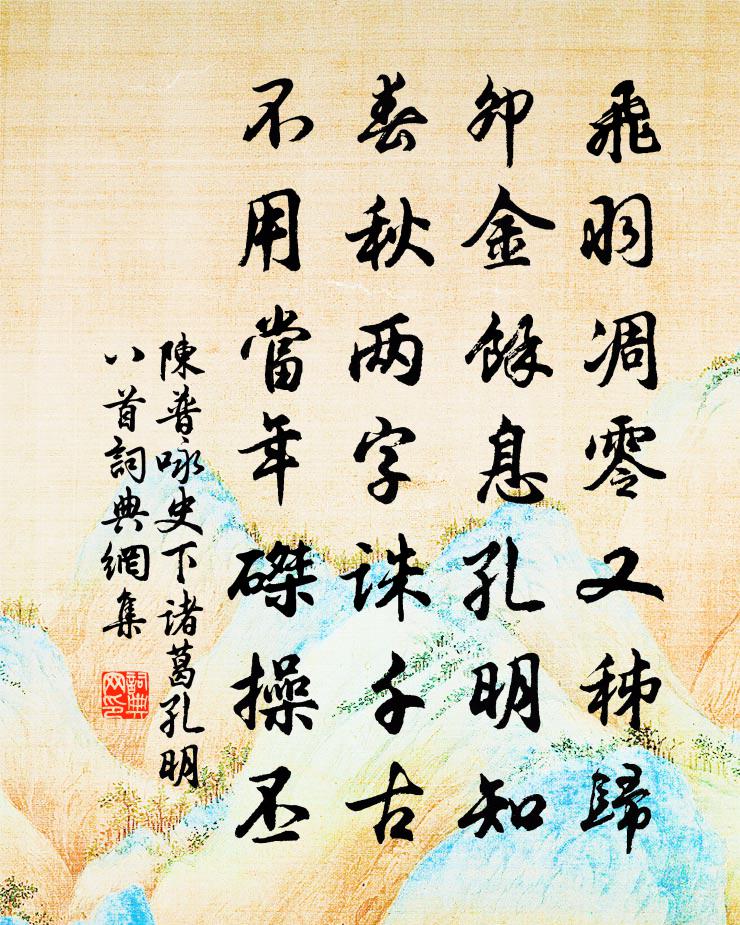 飛羽凋零又秭歸
卯金餘息孔明知
春秋两字誅千古
不用當年磔操丕
陳普咏史下諸葛孔明
八首詞典網集
詞典网印